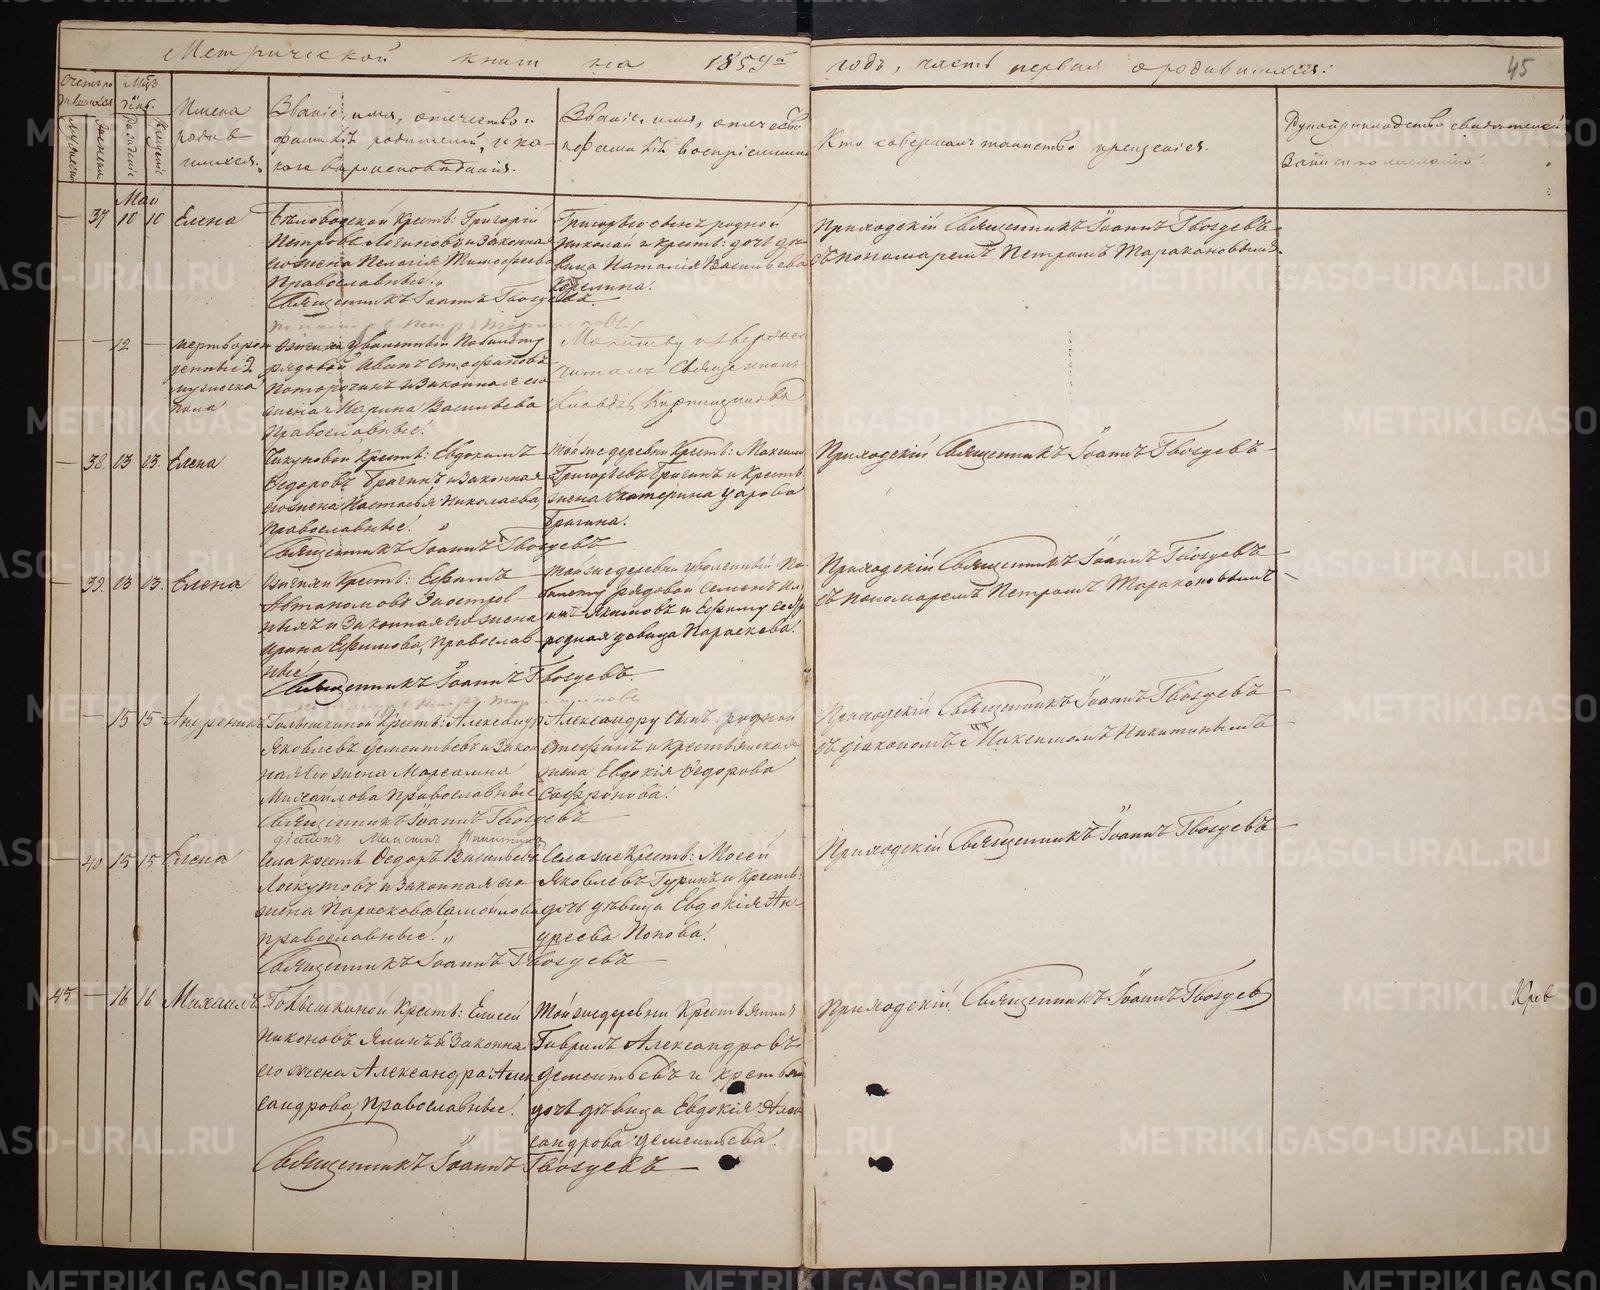 Метрической книги на 1859й
годъ, часть первая о родившихся:
45
Счетъ ро
дившихся
Мужеска
Женска
Мѣс
Рожденія
Крещенія
Имена
родив
шихся.
Званіе, имя, отечество и
фамилія родителей, и ка-
кого вѣроисповѣданія.
Званіе, имя, отечество
и фамилія воспріемников
Кто совершалъ таинство крещенія.
Рукоприкладство свидѣтелей
записи по желанію.
Май
— 37 10 10 Елена
Бѣловодской Крест: Григорій
Петровъ Логиновъ и законная
его жена Пелагія Тимофеева
Православные.
Священникъ Іоаннъ Гвоздевъ.
Григорью сынъ родной
Николай и крест: дочь дѣ-
вица Наталія Васильева
Приходскій Священникъ Іоаннъ Гвоздевъ
съ пономаремъ Петромъ Таракановымъ
— — 12 — мертворож
денный
мужеска
пола
уволенный
рядовой Иванъ Стефановъ
и законная его
жена Марина Васильева
православные.
Молитву
читалъ Священникъ
— 38. 13 13. Елена
Крест: Евдокимъ
Федоровъ Брагинъ и законная
его жена Настасья Николаева,
православные.
Священникъ Іоаннъ Гвоздевъ
Той же деревни Крест: Максим
Григорьевъ Брагинъ и Крест:
жена Екатерина
Брагина.
Приходскій Священникъ Іоаннъ Гвоздевъ
— 39. 13 13. Елена
Крест: Ефимъ
Автаномовъ Заостров
ныхъ и законная его жена
Ирина Ефимова, Православ
ные.
Священникъ Іоаннъ Гвоздевъ.
Той же деревни уволенный
рядовой Семенъ
и Ефиму сест
родная дѣвица Параскева.
Приходскій Священникъ Іоаннъ Гвоздевъ
съ пономаремъ Петромъ Таракановымъ
— 15 15 Андроникъ
Голышкиной Крест: Александръ
Яковлевъ Дементьевъ и закон
ная его жена
Михайлова Православные
Священникъ Іоаннъ Гвоздевъ
діаконъ Максимъ Никитинъ
Александру сынъ родной
Стефанъ и крестьянская
жена Евдокія Федорова
Сафронова.
Приходскій Священникъ Іоаннъ Гвоздевъ
съ діакономъ Максимомъ Никитинымъ
— 40 15 15 Елена
Села крест: Федоръ Васильевъ
Лоскутовъ и законная его
жена Параскева Самойлова
православные.
Священникъ Іоаннъ Гвоздевъ
Села же Крест: Моссей
Яковлевъ Гуринъ и Крест:
дочь дѣвица Евдокія Ан-
дреева Попова.
Приходскій Священникъ Іоаннъ Гвоздевъ
45 — 16 16 Михаилъ
Голышкиной Крест: Елисей
Никоновъ Ялинъ и законна
его жена Александра Алек
сандрова, Православные.
Священникъ Іоаннъ Гвоздевъ
Той же деревни Крестьянинъ
Гаврилъ Александровъ
Дементьевъ и крестьян
дочь дѣвица Евдокія Алек
сандрова Дементьева.
Приходскій Священникъ Іоаннъ Гвоздев
METRIKI.GASO-URAL.RU